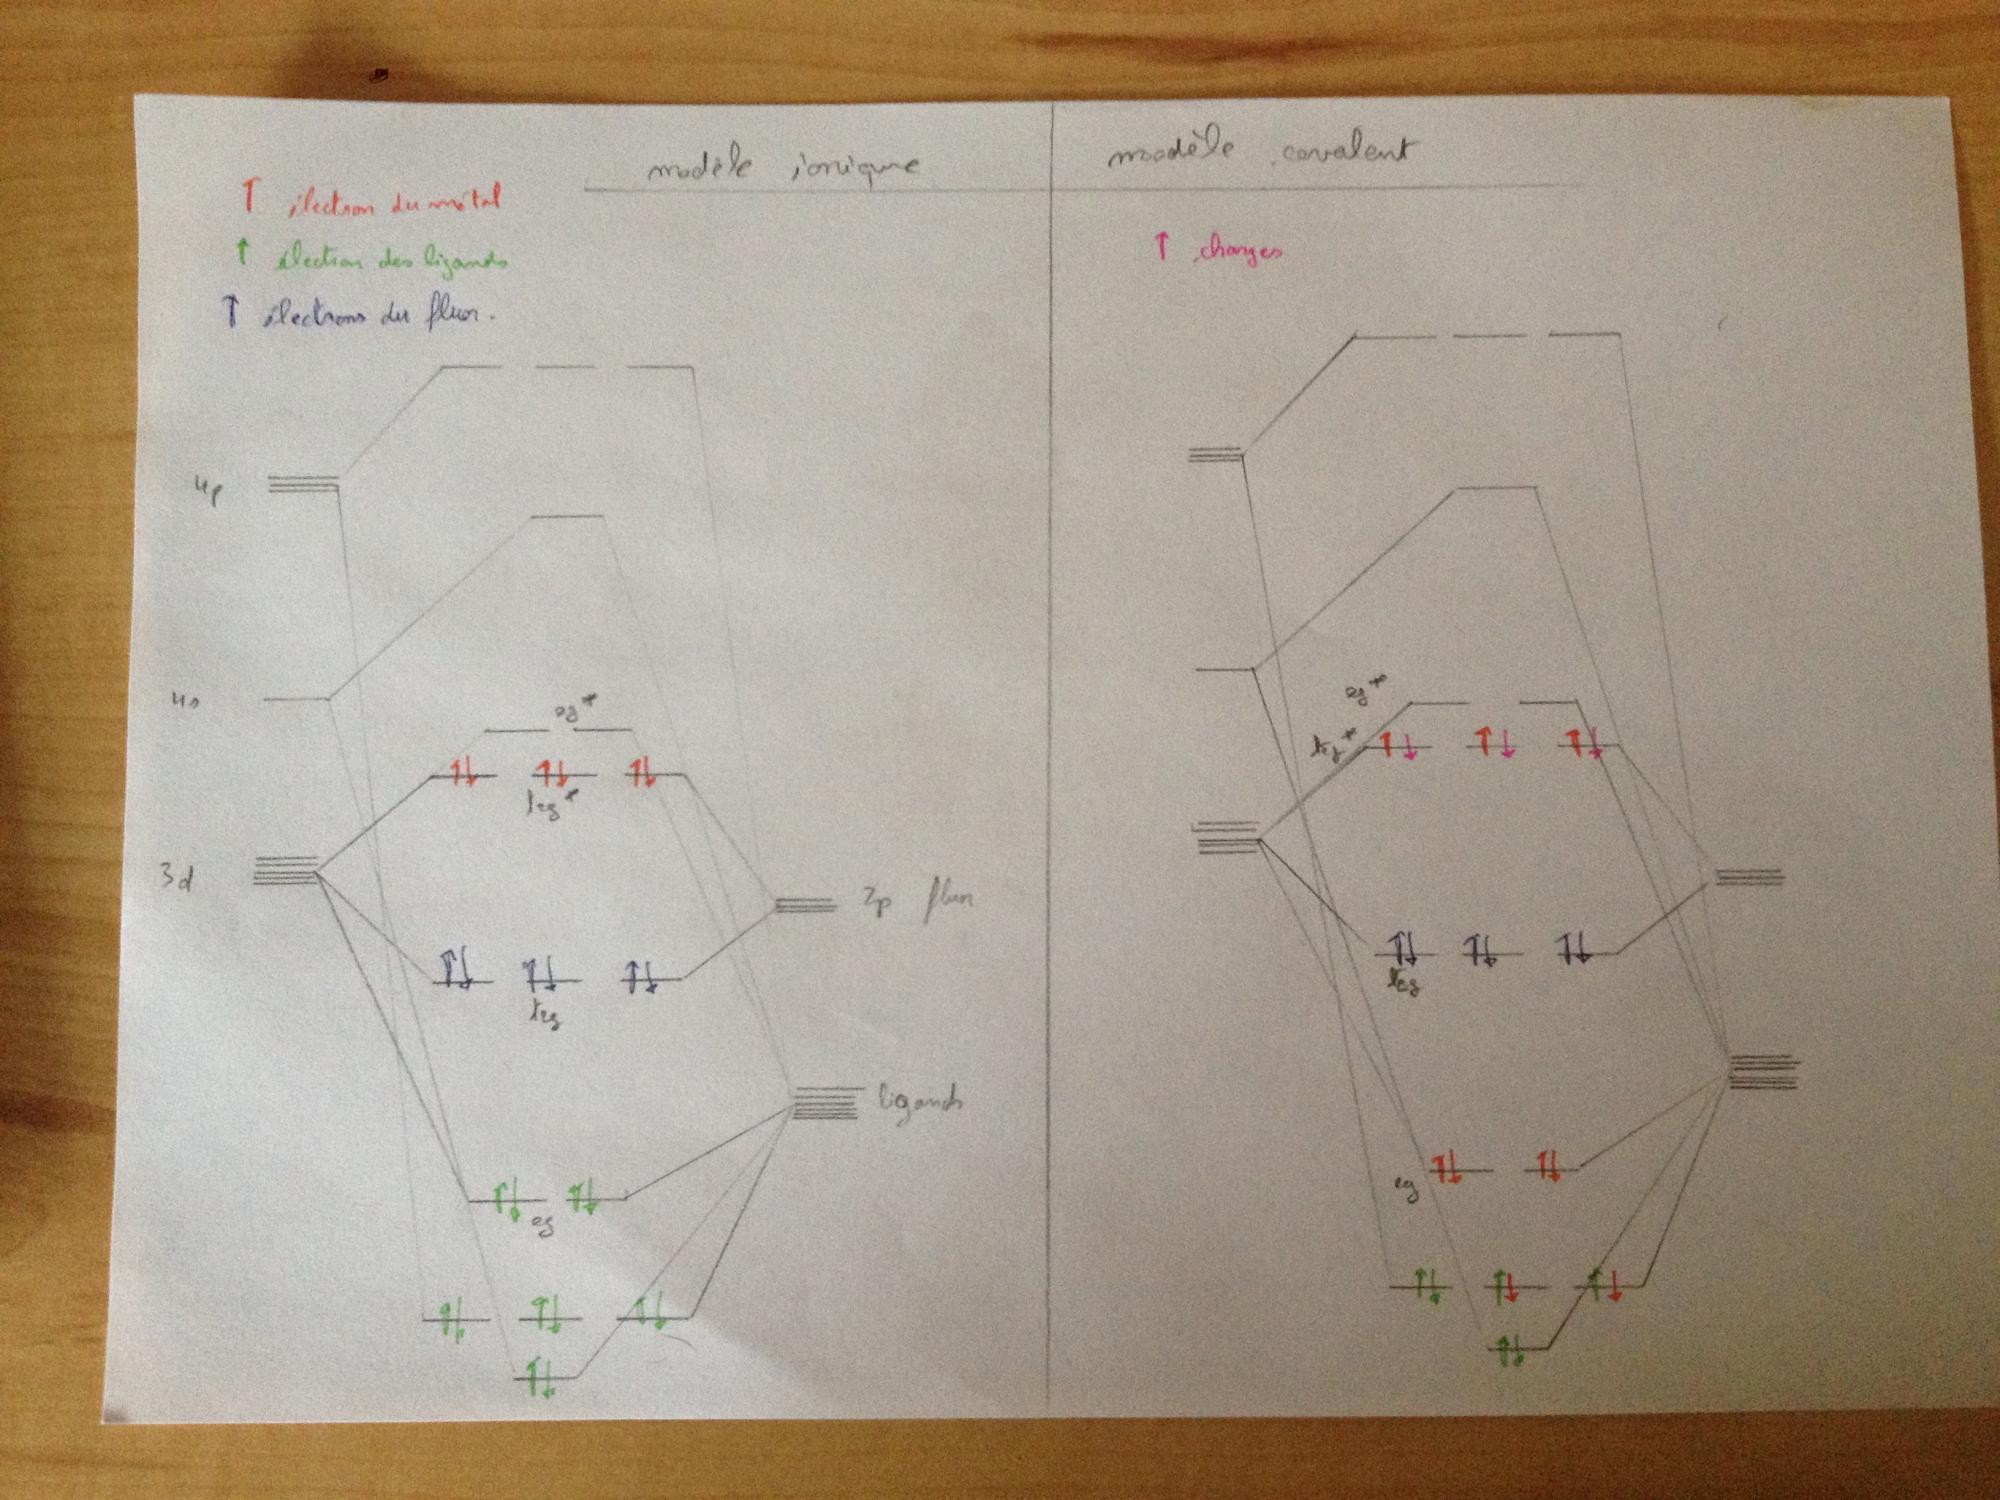 modèle ionique
modèle covalent
↑ électron du métal
↑ électron des ligands
↑ électrons du fluor.
↑ charges
4p
4s
eg*
t2g*
3d
2p fluor
t2g
ligands
eg
eg*
t2g*
t2g
eg